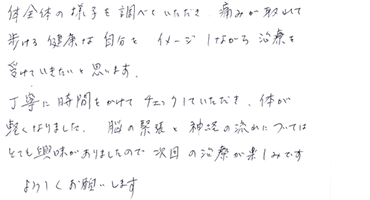 体全体の様子を調べていただき、痛みが取れて
歩ける健康な自分をイメージしながら治療を
受けていきたいと思います。
丁寧に時間をかけてチェックしていただき、体が
軽くなりました。脳の緊張と神経の流れについては
とても興味がありましたので次回の治療が楽しみです
よろしくお願いします